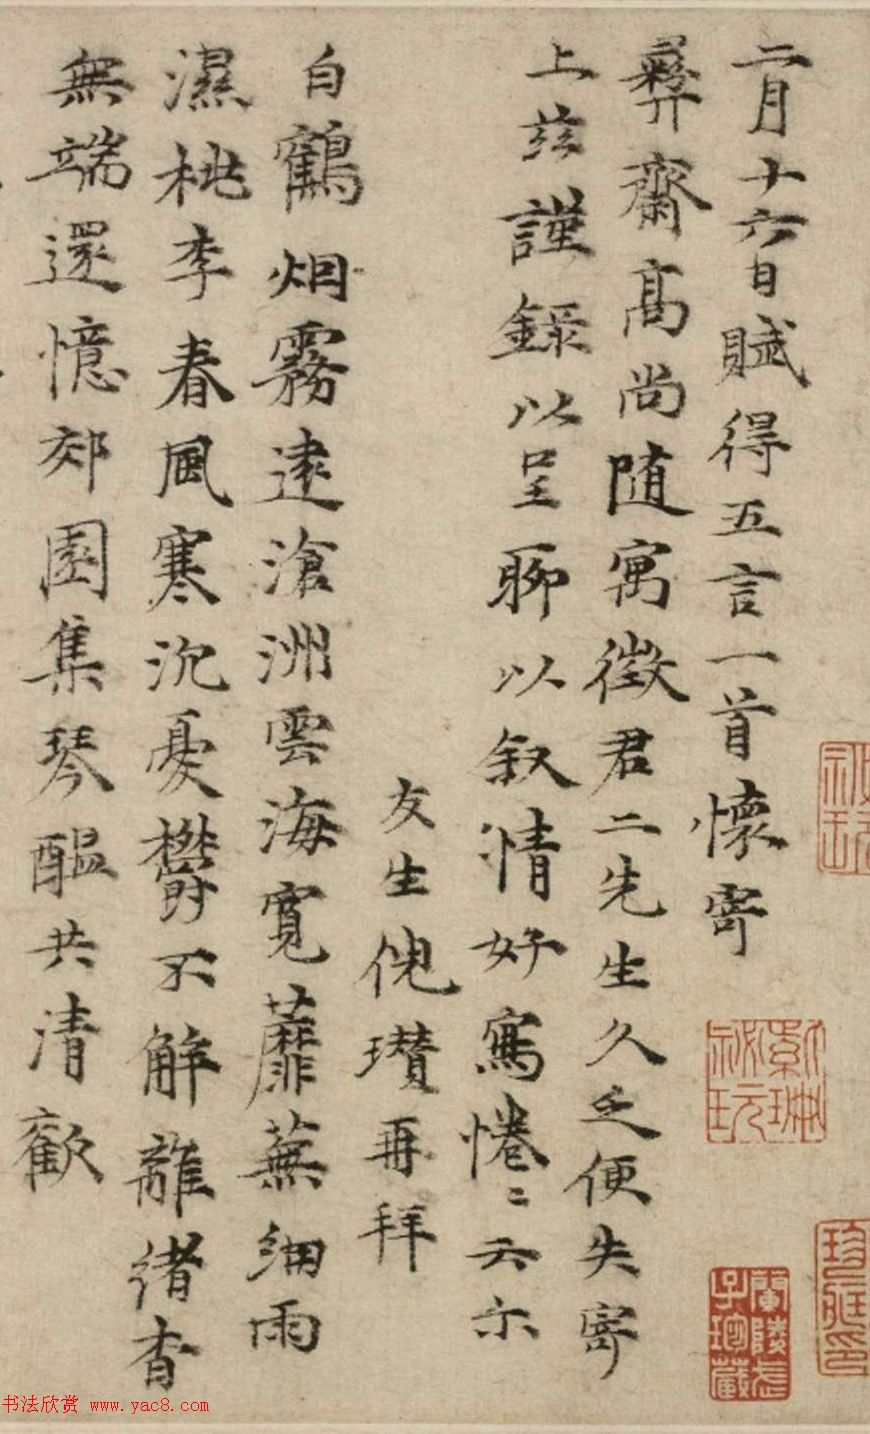 二月十六日賦得五言一首懷寄
彝齋高尚隨寓徵君二先生久乏便失寄
上兹謹錄以呈聊以叙情好寫惓〻云尒
友生倪瓚再拜
白鶴烟霧遠滄洲雲海寬蘼蕪細雨
濕桃李春風寒沉憂鬱不解離緒杳
無端還憶郊園集琴醖共清歡
书法欣赏 www.yac8.com